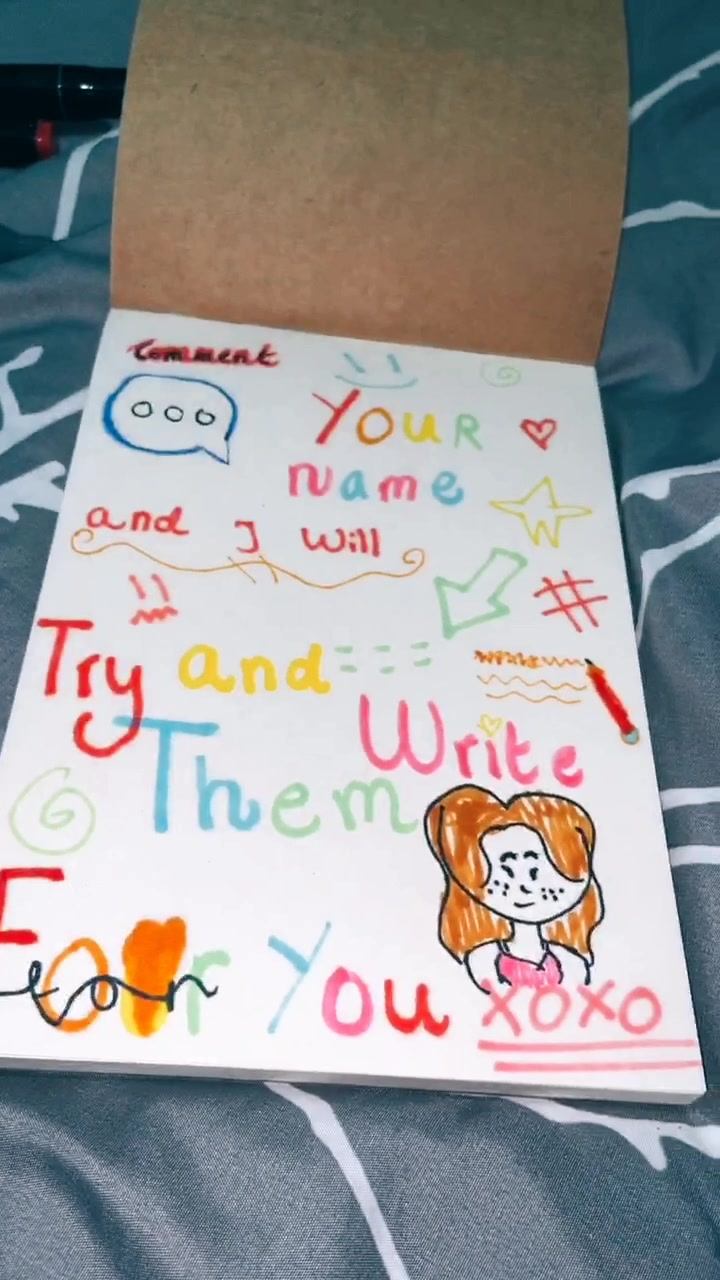 Comment
YOUR
name
and I will
Try and
Write
Them
For You xoxo
for